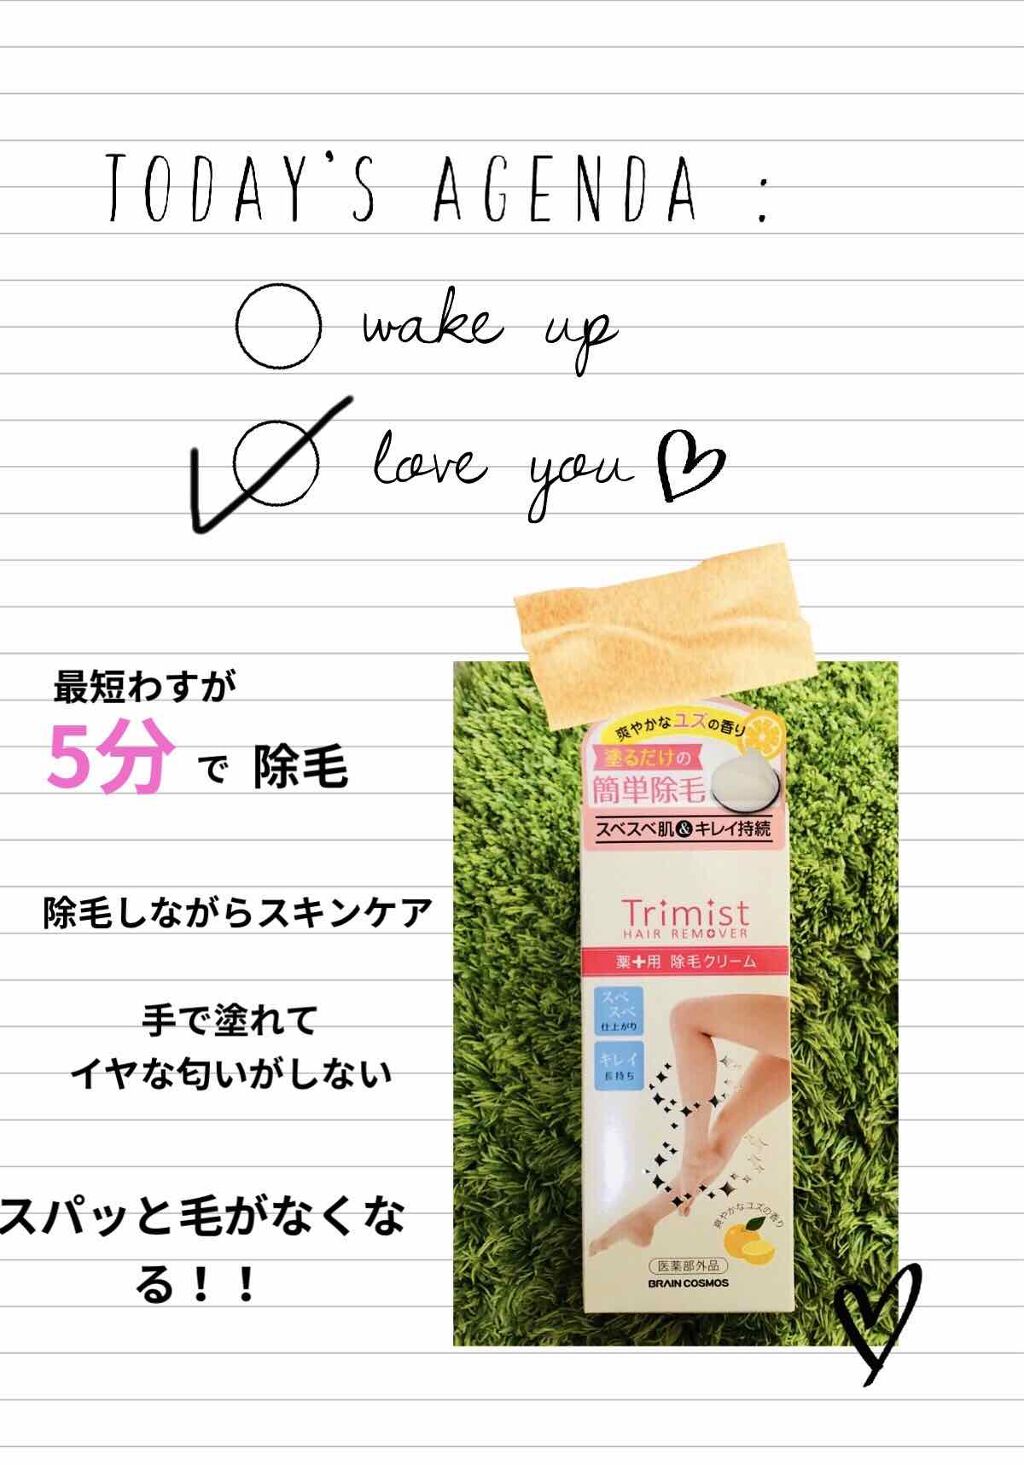 TODAY'S AGENDA :
wake up
love you
最短わすが
5分で 除毛
除毛しながらスキンケア
手で塗れて
イヤな匂いがしない
スパッと毛がなくな
る！！
爽やかなユズの香り
塗るだけの
簡単除毛
スベスベ肌&キレイ持続
Trimist
HAIR REMOVER
薬+用 除毛クリーム
スベ
スベ
仕上がり
キレイ
長持ち
爽やかなユズの香り
医薬部外品
BRAIN COSMOS